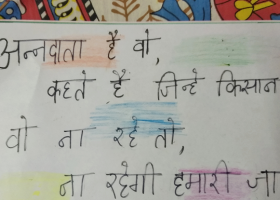 अन्नदाता है वो,
कहते हैं जिन्हे किसान
वो ना रहे तो,
ना रहेगी हमारी जा